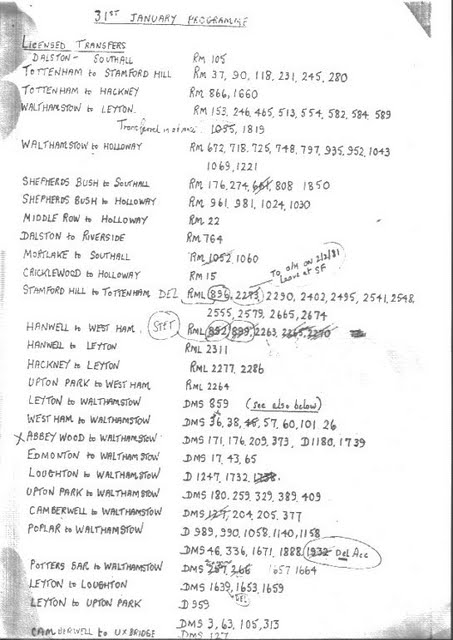 31ST JANUARY PROGRAMME
LICENSED TRANSFERS
DALSTON - SOUTHALL RM 105
TOTTENHAM to STAMFORD HILL RM 37, 90, 118, 231, 245, 280
TOTTENHAM to HACKNEY RM 866, 1660
WALTHAMSTOW to LEYTON RM 153, 246, 465, 513, 554, 582, 584, 589
Transferred in advance 1055, 1819
WALTHAMSTOW to HOLLOWAY RM 672, 718, 725, 748, 797, 935, 952, 1043
1069, 1221
SHEPHERDS BUSH to SOUTHALL RM 176, 274, 661, 808 1850
SHEPHERDS BUSH to HOLLOWAY RM 961, 981, 1024, 1030
MIDDLE ROW to HOLLOWAY RM 22
DALSTON to RIVERSIDE RM 764
MORTLAKE to SOUTHALL RM 1052 1060
CRICKLEWOOD to HOLLOWAY RM 15
TO O/H ON 2/2/81
Leave at SF
STAMFORD HILL to TOTTENHAM DEL RML 896, 2273 2290, 2402, 2495, 2541, 2548,
2555, 2579, 2665, 2674
HANWELL to WEST HAM STET RML 892 899, 2263, 2265, 2270
HANWELL to LEYTON RML 2311
HACKNEY to LEYTON RML 2277, 2286
UPTON PARK to WEST HAM RML 2264
LEYTON to WALTHAMSTOW DMS 859 (see also below)
WEST HAM to WALTHAMSTOW DMS 36, 38, 57, 60, 101 26
X ABBEY WOOD to WALTHAMSTOW DMS 171, 176, 209, 373, D1180, 1739
EDMONTON to WALTHAMSTOW DMS 17, 43, 65
LOUGHTON to WALTHAMSTOW D 1247, 1732, 1738
UPTON PARK to WALTHAMSTOW DMS 180, 259, 329, 389, 409
CAMBERWELL to WALTHAMSTOW DMS 127, 204, 205, 377
POPLAR to WALTHAMSTOW D 989, 990, 1058, 1140, 1158
DMS 46, 336, 1671, 1888, 1932 Del Acc
POTTERS BAR to WALTHAMSTOW DMS 257, 266 1657 1664
LEYTON to LOUGHTON DMS 1639, 1653, 1659
DEL
LEYTON to UPTON PARK D 959
DMS 3, 63, 105, 313
CAMBERWELL to UXBRIDGE DMS 127